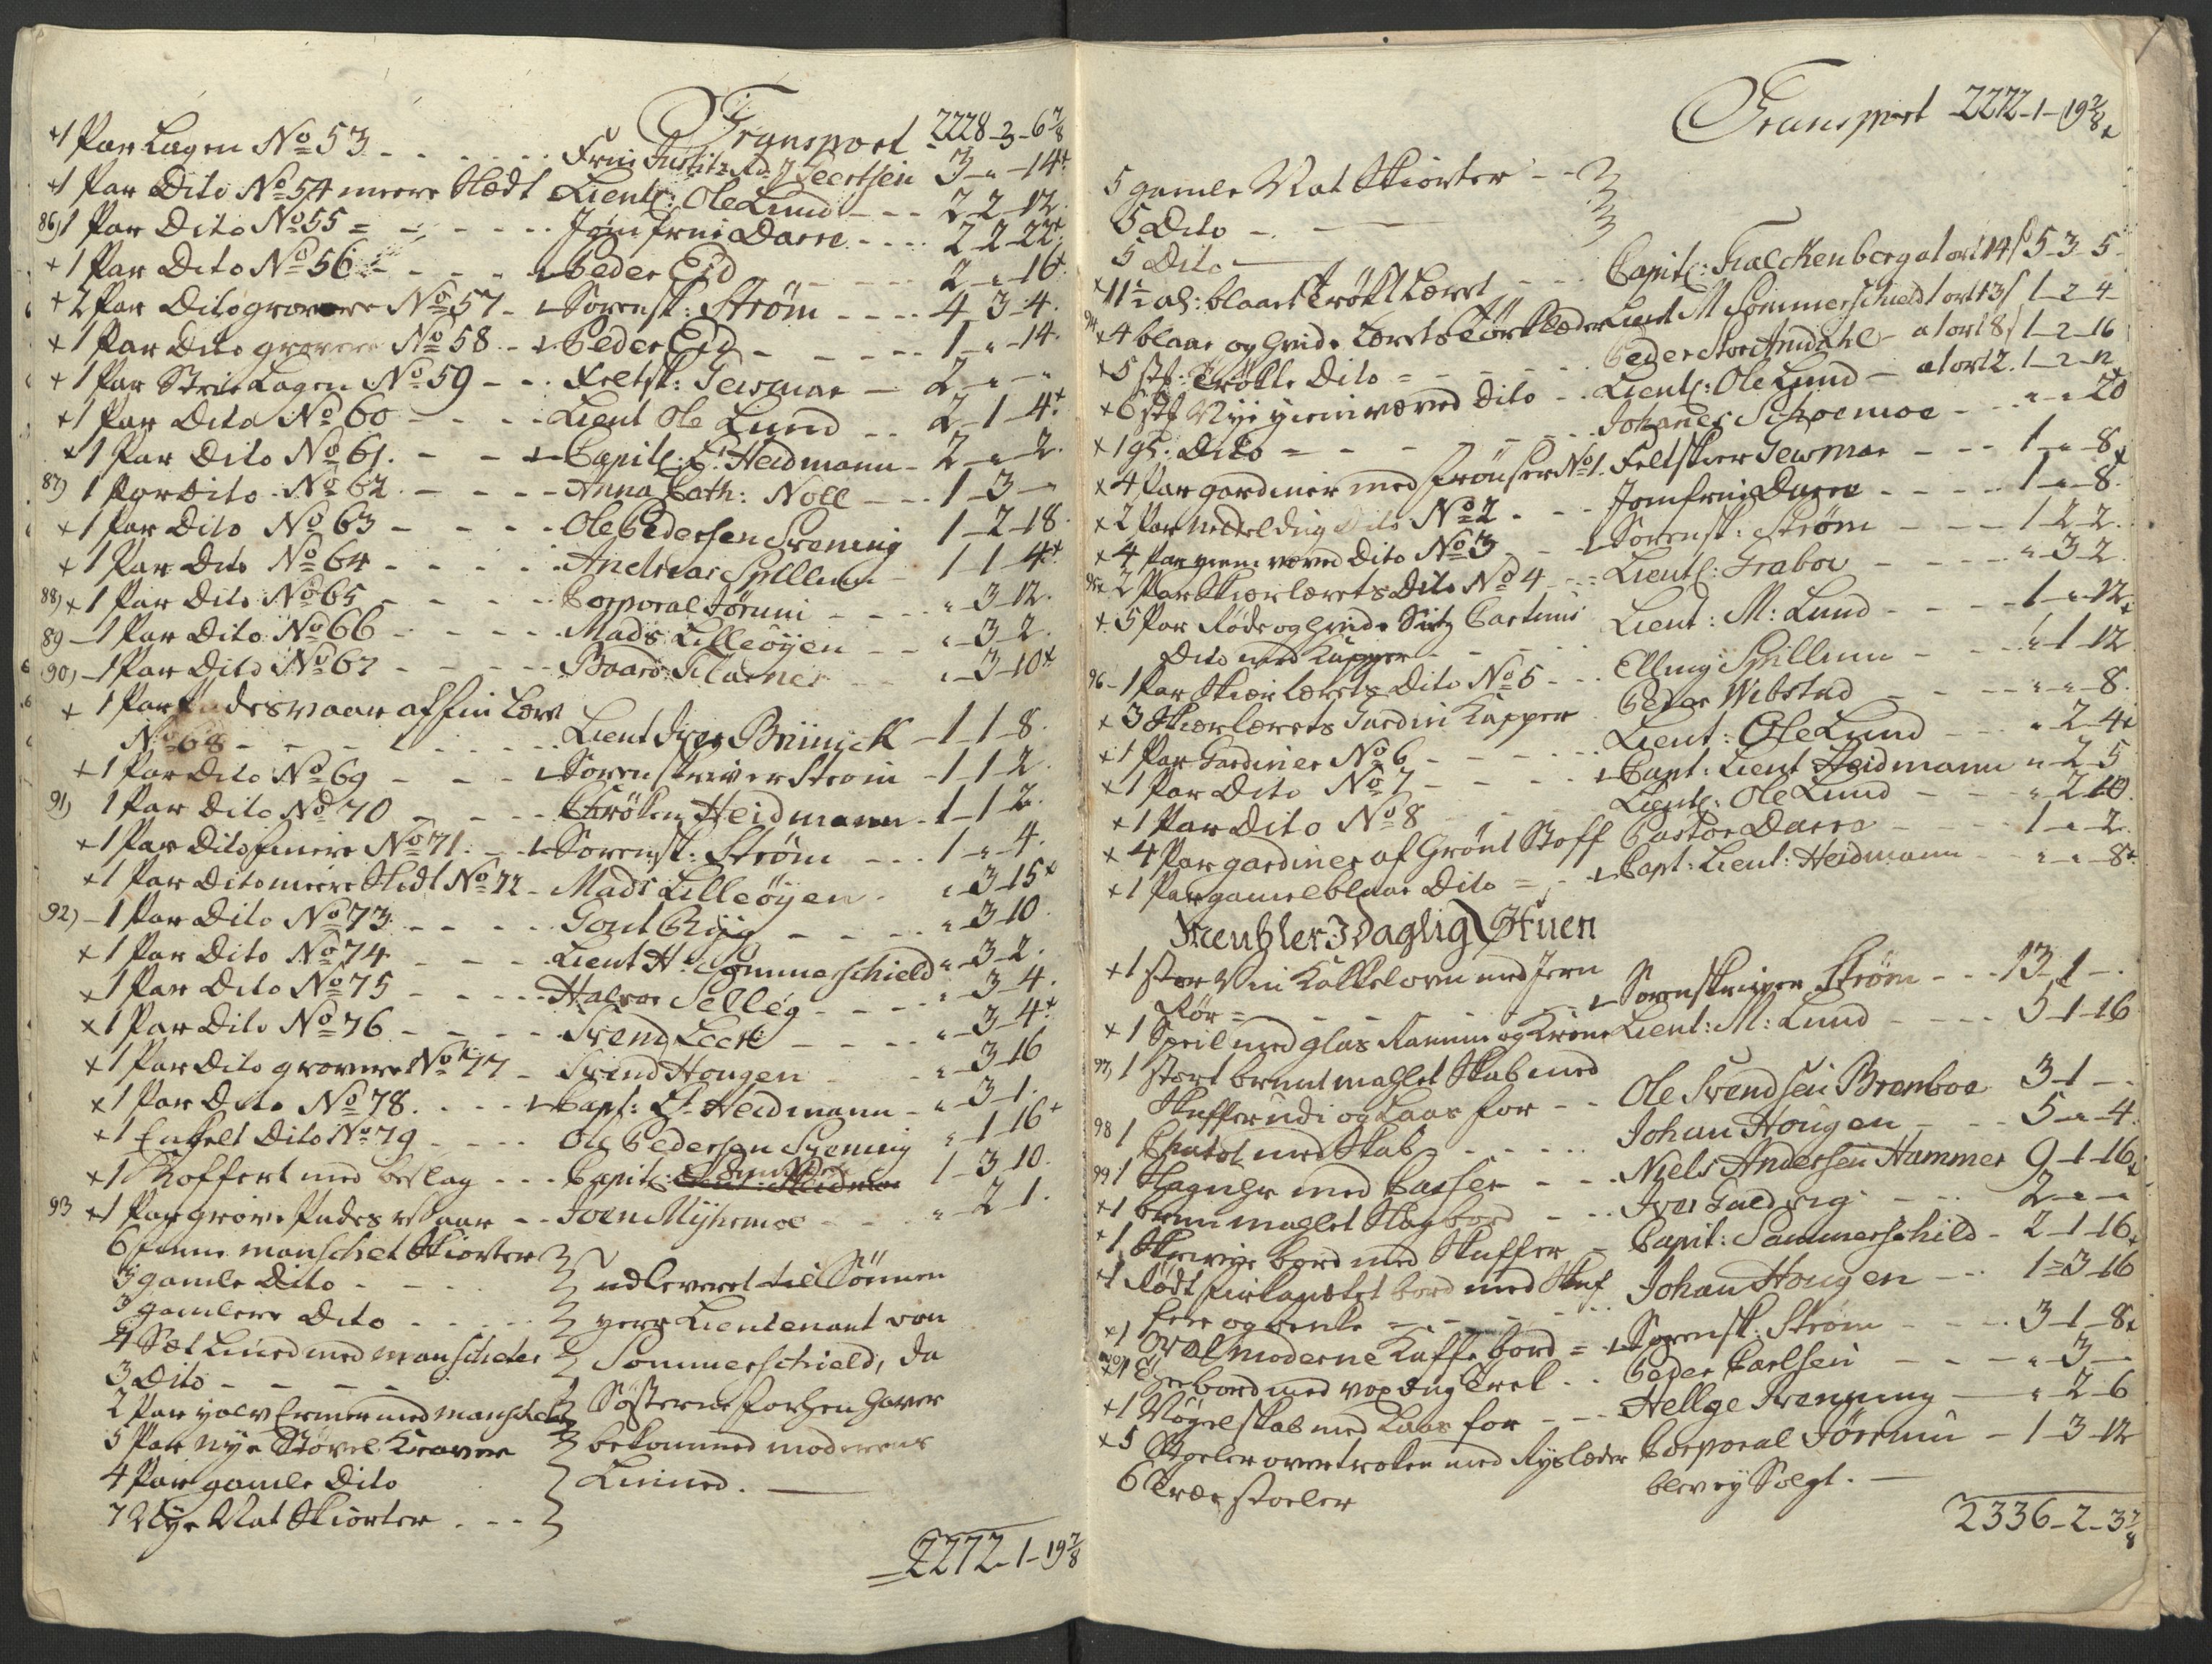 Transport 2228-3-6 7/8
+1 Par Lagen No 53 - - - Frue Justitz Rd: Geertsen 3 - " - 14 +
+1 Par Dito No 54 meere Slædt Lieut: Ole Lund - - - 2 - 2 - 12.
86) 1 Par Dito No 55 = - - - Jomfrue Darre - - - 2 - 2 - 22 +
+ 1 Par Dito No 56 - - - Peder Eid - - - 2 - " - 16 +
+ 2 Par Dito grovere No 57 - Sorensk: Strøm - - - 4 - 3 - 4.
+ 1 Par Dito grovere No 58 - Peder Eid - - - 1 - " - 14.
+ 1 Par Strie Lagen No 59 - - Feltsk: Gewmar - 2 - " - "
+ 1 Par Dito No 60 - - - Lieut Ole Lund - - 2 - 1 - 4 +
+ 1 Par Dito No 61. - - Capit: E: Heidmann - 2 - " - 2.
87) 1 Par Dito No 62 - - - Anna Cath: Noll - - 1 - 3 - "
+ 1 Par Dito No 63 - - - Ole Pedersen Svening 1 - 2 - 18.
+ 1 Par Dito No 64 - - - Andreas Spillum - 1 - 1 - 4 +
88) + 1 Par Dito No 65 - - - Corporal Jørum - - - " - 3 - 12.
89 - 1 Par Dito No 66 - - - Mads Lilleøyen - - " - 3 - 2.
90) - 1 Par Dito No 67 - - - Baard - - " - 3 - 10 +
+ 1 Par Pudesvaar af fin Lært
No 68 - - - Lieut Iver Brinick - 1 - 1 - 8.
+ 1 Par Dito No 69 - - - Sorenskriver Strøm - 1 - 1 - 2.
91) 1 Par Dito No 70 - - - Frøken Heidmann - 1 - 1 - 2.
+ 1 Par Dito finere No 71. - Sorensk: Strøm - - - 1 - " - 4.
+ 1 Par Dito meere Slidt No 72 - Mads Lilleøyen - " - 3 - 15 +
92) - 1 Par Dito No 73 - - - - - - " - 3 - 10.
+ 1 Par Dito No 74 - - - Lieut H: Sommerschield " - 3 - 2.
+ 1 Par Dito No 75 - - - Halvor Selleg - - - " - 3 - 4.
+ 1 Par Dito No 76 - - - Svend Leer - - - " - 3 - 4 +
+ 1 Par Dito grovere No 77 - Svend Hougen - - - " - 3 - 16
+ 1 Par Dito No 78. - - - Capt: E: Heidmann - " - 3 - 1.
+ 1 Enkelt Dito No 79 - - - Ole Pedersen Svening " - 1 - 16 +
+ 1 Koffert med beslag - - - Capit: 1 - 3 - 10.
93 + 1 Par grove Pudesvaar - - Joen Myhrmoe - - - " - 2 - 1.
6 finne manschet Skiorter
3 gamle Dito - - - udleveret til Sønnen
3 gamlere Dito - - - herr Lieutenant von
4 Sæt Linned med manscheter Sommerschield, da
3 Dito - - - - Søsterne forhen haver
2 Par halv Ermer med manscheter bekommed moderens
5 Par nye Støvel Kraver Linned. -
4 Par gamle Dito
7 Nye Nat Skiorter - - -
2272 - 1 - 19 7/8
Transport 2272 - 1 - 19 7/8
5 gamle Nat Skiorter - -
5 Dito - - -
5 Dito - Capit: Falckenberg a 1 ort 14 s 5 - 3 - 5 -
+ 11 1/2 al: blaat Trøkt Lærret - - - Lieut M Sommerschield 1 ort 13 s 1 - 2 - 4 -
94 + 4 blaae og hvide Lærrets Tørklæder Peder Stor Amdahl - a 1 ort 8 s 1 - 2 - 16
+ 5 st: Trøkte Dito = - - - Lieut: Ole Lund - a 1 ort 2. 1 - 2 - 12
+ 6 st Nye hiemvæved Dito - - Johanes Schoemoe - - - " - " - 20
+ 1 gl: Dito = - - - Feltskier Gewmar - - - 1 - " - 8 +
+ 4 Par gardiner med frønser No 1. Jomfrue Darre - - - 1 - " - 8.
+ 2 Par Dito No 2 - - Sorensk: Strøm - - - 1 - 2 - 2.
+ 4 Par hiemvæved Dito No 3 - - Lieut: Grabow - - - " - 3 - 2
95 2 Par Skierlærrets Dito No 4 - - Lieut: M: Lund - - - 1 - " - 12 +
+ 5 Par Røde og hvide Sitz Cartuns
Dito med Kapper - - - Elling Spillum - - " - 1 - 12
96 - 1 Par Skierlærrets Dito No 5 - - Peder Wibstad - - - " - " - 8.
+ 3 Skierlærrets Gardin Kapper Lieut: Ole Lund - - - " - 2 - 4 +
+ 1 Par Gardiner No 6 - - - Capt: Lieut Heidmann " - 2 - 5
+ 1 Par Dito No 7 - - - Lieut: Ole Lund - - " - 2 - 10.
+ 1 Par Dito No 8 - - - Pastor Darre - - 1 - " - 2.
+ 4 Par gardiner af Grønt Stoff
+ 1 Par gamel blaae Dito = - Capt: Lieut: Heidmann - " - " - 8 +
Meubler I Daglig Stuen
+ 1 stor Vin Kakkelovn med Jern
Rør = - - - Sorenskriver Strøm - - - 13 - 1 -.
+ 1 Speil med glas Ramme og Krone Lieut: M: Lund - - - 5 - 1 - 16
97) 1 stort brunt mahlet Skab med
Skuffer udi og Laas for - - Ole Svendsen Bremboe 3 - 1 - -
98 1 Chatol med Skab - - - Johan Hougen - - - 5 - " - 4.
99 1 Slaguhr med Casse - - - Niels Andersen Hammer 9 - 1 - 16 +
+ 1 brun mahlet Slagbord - - Iver Galdvig - - - 2 - " - "
+ 1 Skrive bord med Skuffer - Capit: Sommerschild - 2 - 1 - 16 +
+ 1 Rødt firkantet bord med Skuf
fer og benke - - - Johan Hougen - - 1 - 3 - 16
+ 1 Oval moderne Kaffe bord = Sorensk: Strøm - - - 3 - 1 - 8 +
bord med voxdug Trek - - Peder Carlsen - - - " - 3 -
+ 1 Nøgelskab med Laas for - - Hellge Svenning - " - 2 - 6
+ 5 Stoeler overtroken med Ryslæder Corporal Jørum - 1 - 3 - 12
6 Træe stoeler blev ey Solgt. -
2336 - 2 - 3 7/8